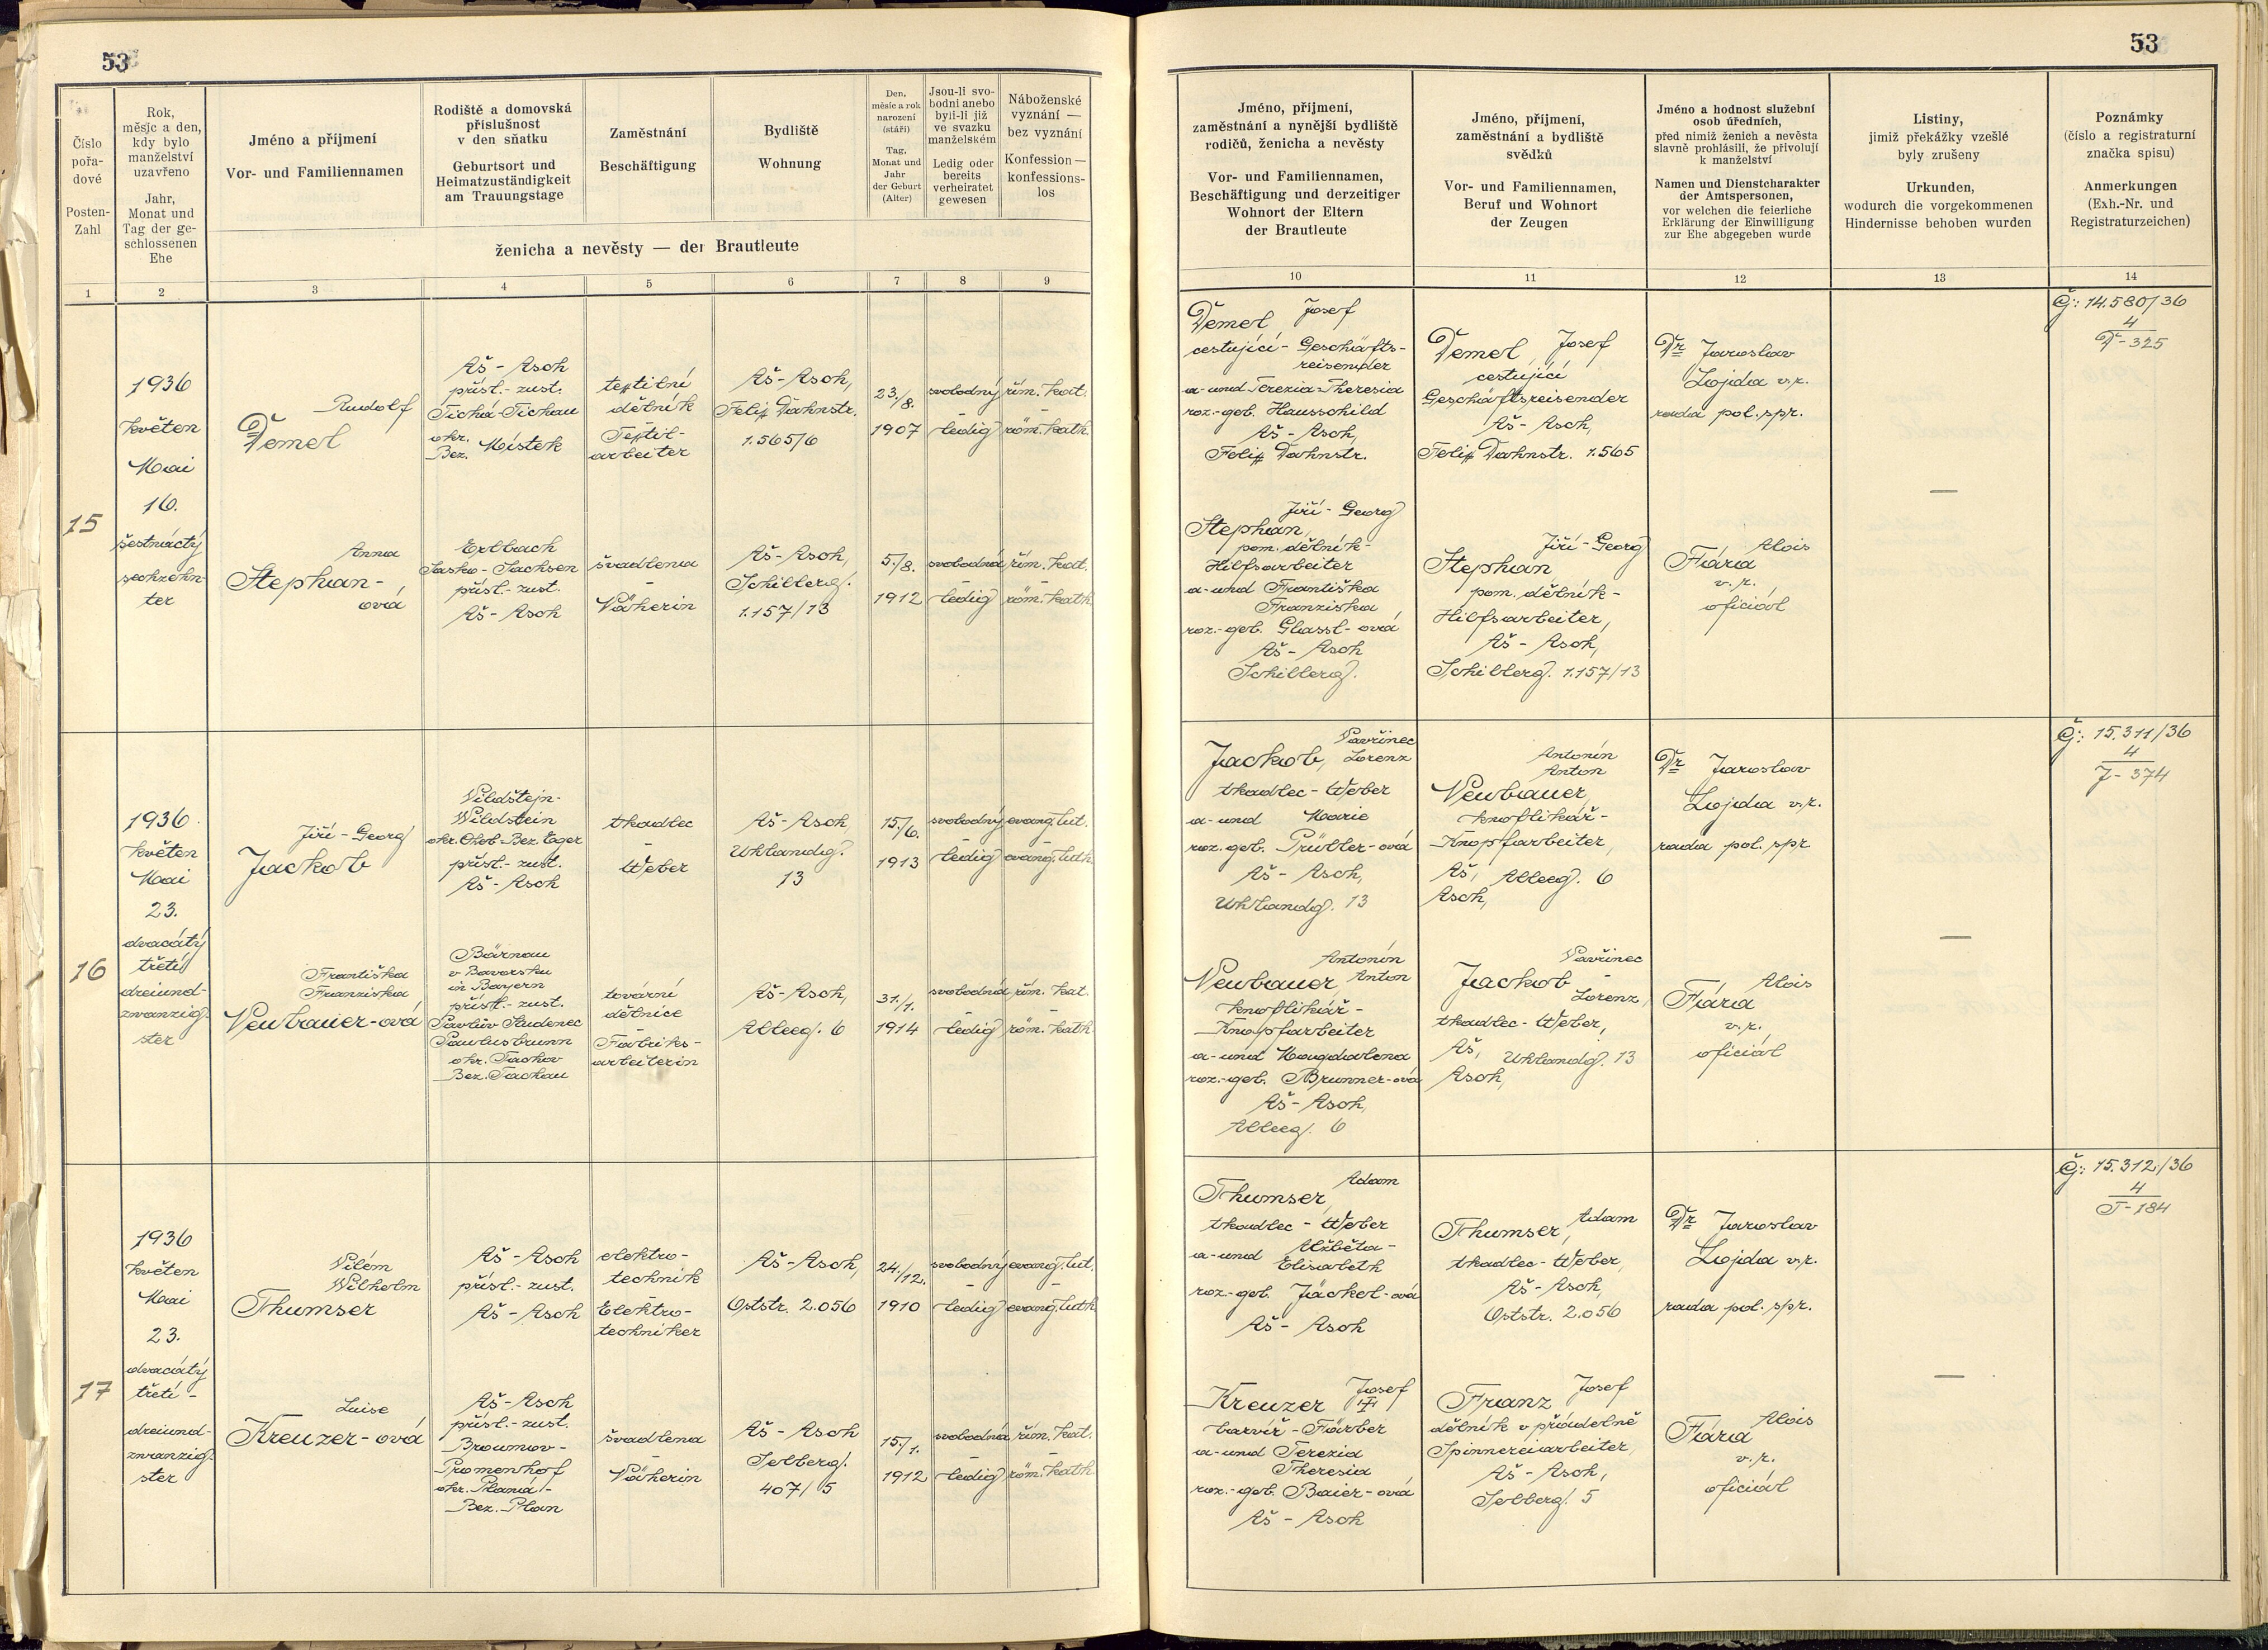 53
Číslo
pořa-
dové
Posten-
Zahl
Rok,
měsíc a den,
kdy bylo
manželství
uzavřeno
Jahr,
Monat und
Tag der ge-
schlossenen
Ehe
Jméno a příjmení
Vor- und Familiennamen
Rodiště a domovská
příslušnost
v den sňatku
Geburtsort und
Heimatzuständigkeit
am Trauungstage
Zaměstnání
Beschäftigung
Bydliště
Wohnung
Den,
měsíc a rok
narození
(stáří)
Tag,
Monat und
Jahr
der Geburt
(Alter)
Jsou-li svo-
bodni anebo
byli-li již
ve svazku
manželském
Ledig oder
bereits
verheiratet
gewesen
Náboženské
vyznání —
bez vyznání
Konfession —
konfessions-
los
ženicha a nevěsty — der Brautleute
1 2 3 4 5 6 7 8 9
15
1936
květen
Mai
16.
šestnáctý
sechzehn-
ter
Rudolf
Demel
Aš - Asch
přísl.- zust.
Tichá-Tichau
okr.
Bez. Místek
textilní
dělník
Textil-
arbeiter
Aš - Asch,
Felix Dahnstr.
1.565/6
23./8.
1907
svobodný
-
ledig
řím. kat.
-
röm. kath.
Anna
Stephan-
ová
Erlbach
Sasko - Sachsen
přísl.- zust.
Aš - Asch
švadlena
-
Näherin
Aš - Asch,
Schillerg.
1.157/13
5./8.
1912
svobodná
-
ledig
řím. kat.
-
röm. kath.
16
1936
květen
Mai
23.
dvacátý
třetí
dreiund-
zwanzig-
ster
Jiří - Georg
Jackob
Vildštejn-
Wildstein
okr. Cheb - Bez. Eger
přísl.- zust.
Aš - Asch
tkadlec
-
Weber
Aš - Asch,
Uhlandg.
13
15./6.
1913
svobodný
-
ledig
evang. lut.
-
evang. luth.
Františka
Franziska
Neubauer-ová
Bärnau
v Bavorsku
in Bayern
přísl.- zust.
Pavlův Studenec
Paulusbrunn
okr. Tachov
Bez. Tachau
tovární
dělnice
Fabriks-
arbeiterin
Aš - Asch,
Alleeg. 6
31./1.
1914
svobodná
-
ledig
řím. kat.
-
röm. kath.
17
1936
květen
Mai
23.
dvacátý
třetí -
dreiund-
zwanzig-
ster
Vilém
Wilhelm
Thumser
Aš - Asch
přísl.- zust.
Aš - Asch
elektro-
technik
Elektro-
techniker
Aš - Asch,
Oststr. 2.056
24./12.
1910
svobodný
-
ledig
evang. lut.
-
evang. luth.
Luise
Kreuzer - ová
Aš - Asch
přísl.- zust.
Broumov -
Promenhof
okr. Planá -
Bez. Plan
švadlena
-
Näherin
Aš - Asch
Selberg.
407/5
15./1.
1912
svobodná
-
ledig
řím. kat.
-
röm. kath.
53
Jméno, příjmení,
zaměstnání a nynější bydliště
rodičů, ženicha a nevěsty
Vor- und Familiennamen,
Beschäftigung und derzeitiger
Wohnort der Eltern
der Brautleute
Jméno, příjmení,
zaměstnání a bydliště
svědků
Vor- und Familiennamen,
Beruf und Wohnort
der Zeugen
Jméno a hodnost služební
osob úředních,
před nimiž ženich a nevěsta
slavně prohlásili, že přivolují
k manželství
Namen und Dienstcharakter
der Amtspersonen,
vor welchen die feierliche
Erklärung der Einwilligung
zur Ehe abgegeben wurde
Listiny,
jimiž překážky vzešlé
byly zrušeny
Urkunden,
wodurch die vorgekommenen
Hindernisse behoben wurden
Poznámky
(číslo a registraturní
značka spisu)
Anmerkungen
(Exh.-Nr. und
Registraturzeichen)
10 11 12 13 14
Demel Josef
cestující - Geschäfts-
reisender
a - und Terezia - Theresia
roz.- geb. Hausschild
Aš - Asch,
Felix Dahnstr.
Demel Josef
cestující
Geschäftsreisender
Aš - Asch,
Felix Dahnstr. 1.565
Dr Jaroslav
Lojda v.r.
rada pol. spr.
—
Č: 14.580/36
4
D - 325
Jiří - Georg
Stephan,
pom. dělník -
Hilfsarbeiter
a - und Františka
Franziska
roz.- geb. Glassl - ová
Aš - Asch
Schillerg.
Jiří - Georg
Stephan
pom. dělník -
Hilfsarbeiter,
Aš - Asch,
Schillerg. 1.157/13
Alois
Fiára
v.r.
oficiál
Vavřinec
Jackob, Lorenz
tkadlec - Weber
a - und Marie
roz. geb. Prübler - ová
Aš - Asch,
Uhlandg. 13
Antonín
Anton
Neubauer,
knoflikář -
Knopfarbeiter,
Aš, Alleeg. 6
Asch,
Dr Jaroslav
Lojda v.r.
rada pol. spr.
—
Č: 15.311/36
4
J - 374
Antonín
Neubauer, Anton
knoflikář -
Knopfarbeiter
a - und Magdalena
roz.- geb. Brunner - ová
Aš - Asch,
Alleeg. 6
Vavřinec
Jackob -
Lorenz,
tkadlec - Weber,
Aš, Uhlandg. 13
Asch,
Alois
Fiára
v.r.
oficiál
Adam
Thumser,
tkadlec - Weber
a - und Alžběta -
Elisabeth
roz.- geb. Jäckel - ová
Aš - Asch
Thumser, Adam
tkadlec - Weber,
Aš - Asch,
Oststr. 2.056
Dr Jaroslav
Lojda v.r.
rada pol. spr.
—
Č: 15.312/36
4
T - 184
Kreuzer Josef
barvíř - Färber
a - und Terezia
Theresia
roz.- geb. Baier - ová
Aš - Asch
Franz Josef
dělník v přádelně
Spinnereiarbeiter,
Aš - Asch,
Selberg. 5
Alois
Fiára
v.r.
oficiál